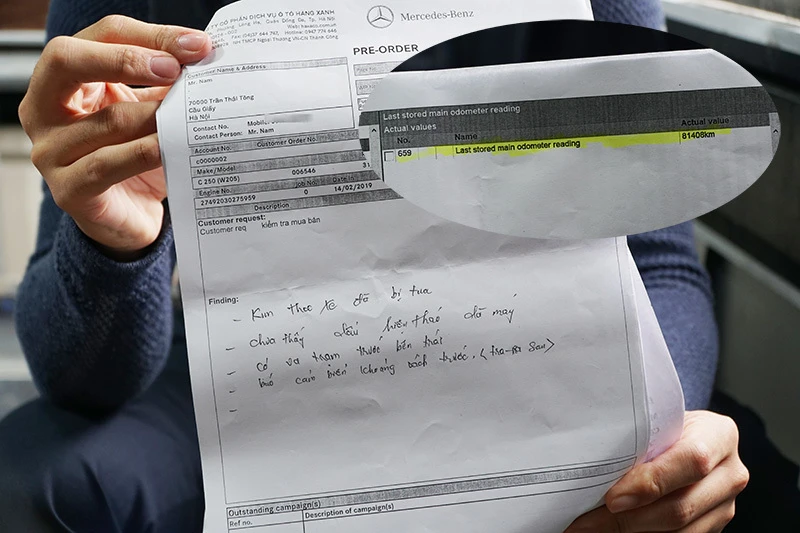 CỔ PHẦN DỊCH VỤ Ô TÔ HÀNG XANH
Mercedes-Benz
PRE-ORDER
Customer Name & Address
Mr. Nam
70000 Trần Thái Tông
Cầu Giấy
Hà Nội
Contact No. Mobile:
Contact Person: Mr. Nam
Account No. Customer Order No.
c0000002
Make/Model
C 250 (W205) 006546
Engine No. Job No. Date In
27492030275959 0 14/02/2019
Description
Customer request:
Customer req kiểm tra mua bán
Last stored main odometer reading
Actual values
No. Name Actual value
659 Last stored main odometer reading 81408km
Finding:
- Km theo xe đã bị tua
- chưa thấy dấu hiệu tháo dỡ máy
- có va trạm trước bên trái
- cảm biến khoảng cách trước.
-
Outstanding campaign(s)
Ref no. Description of campaign(s)